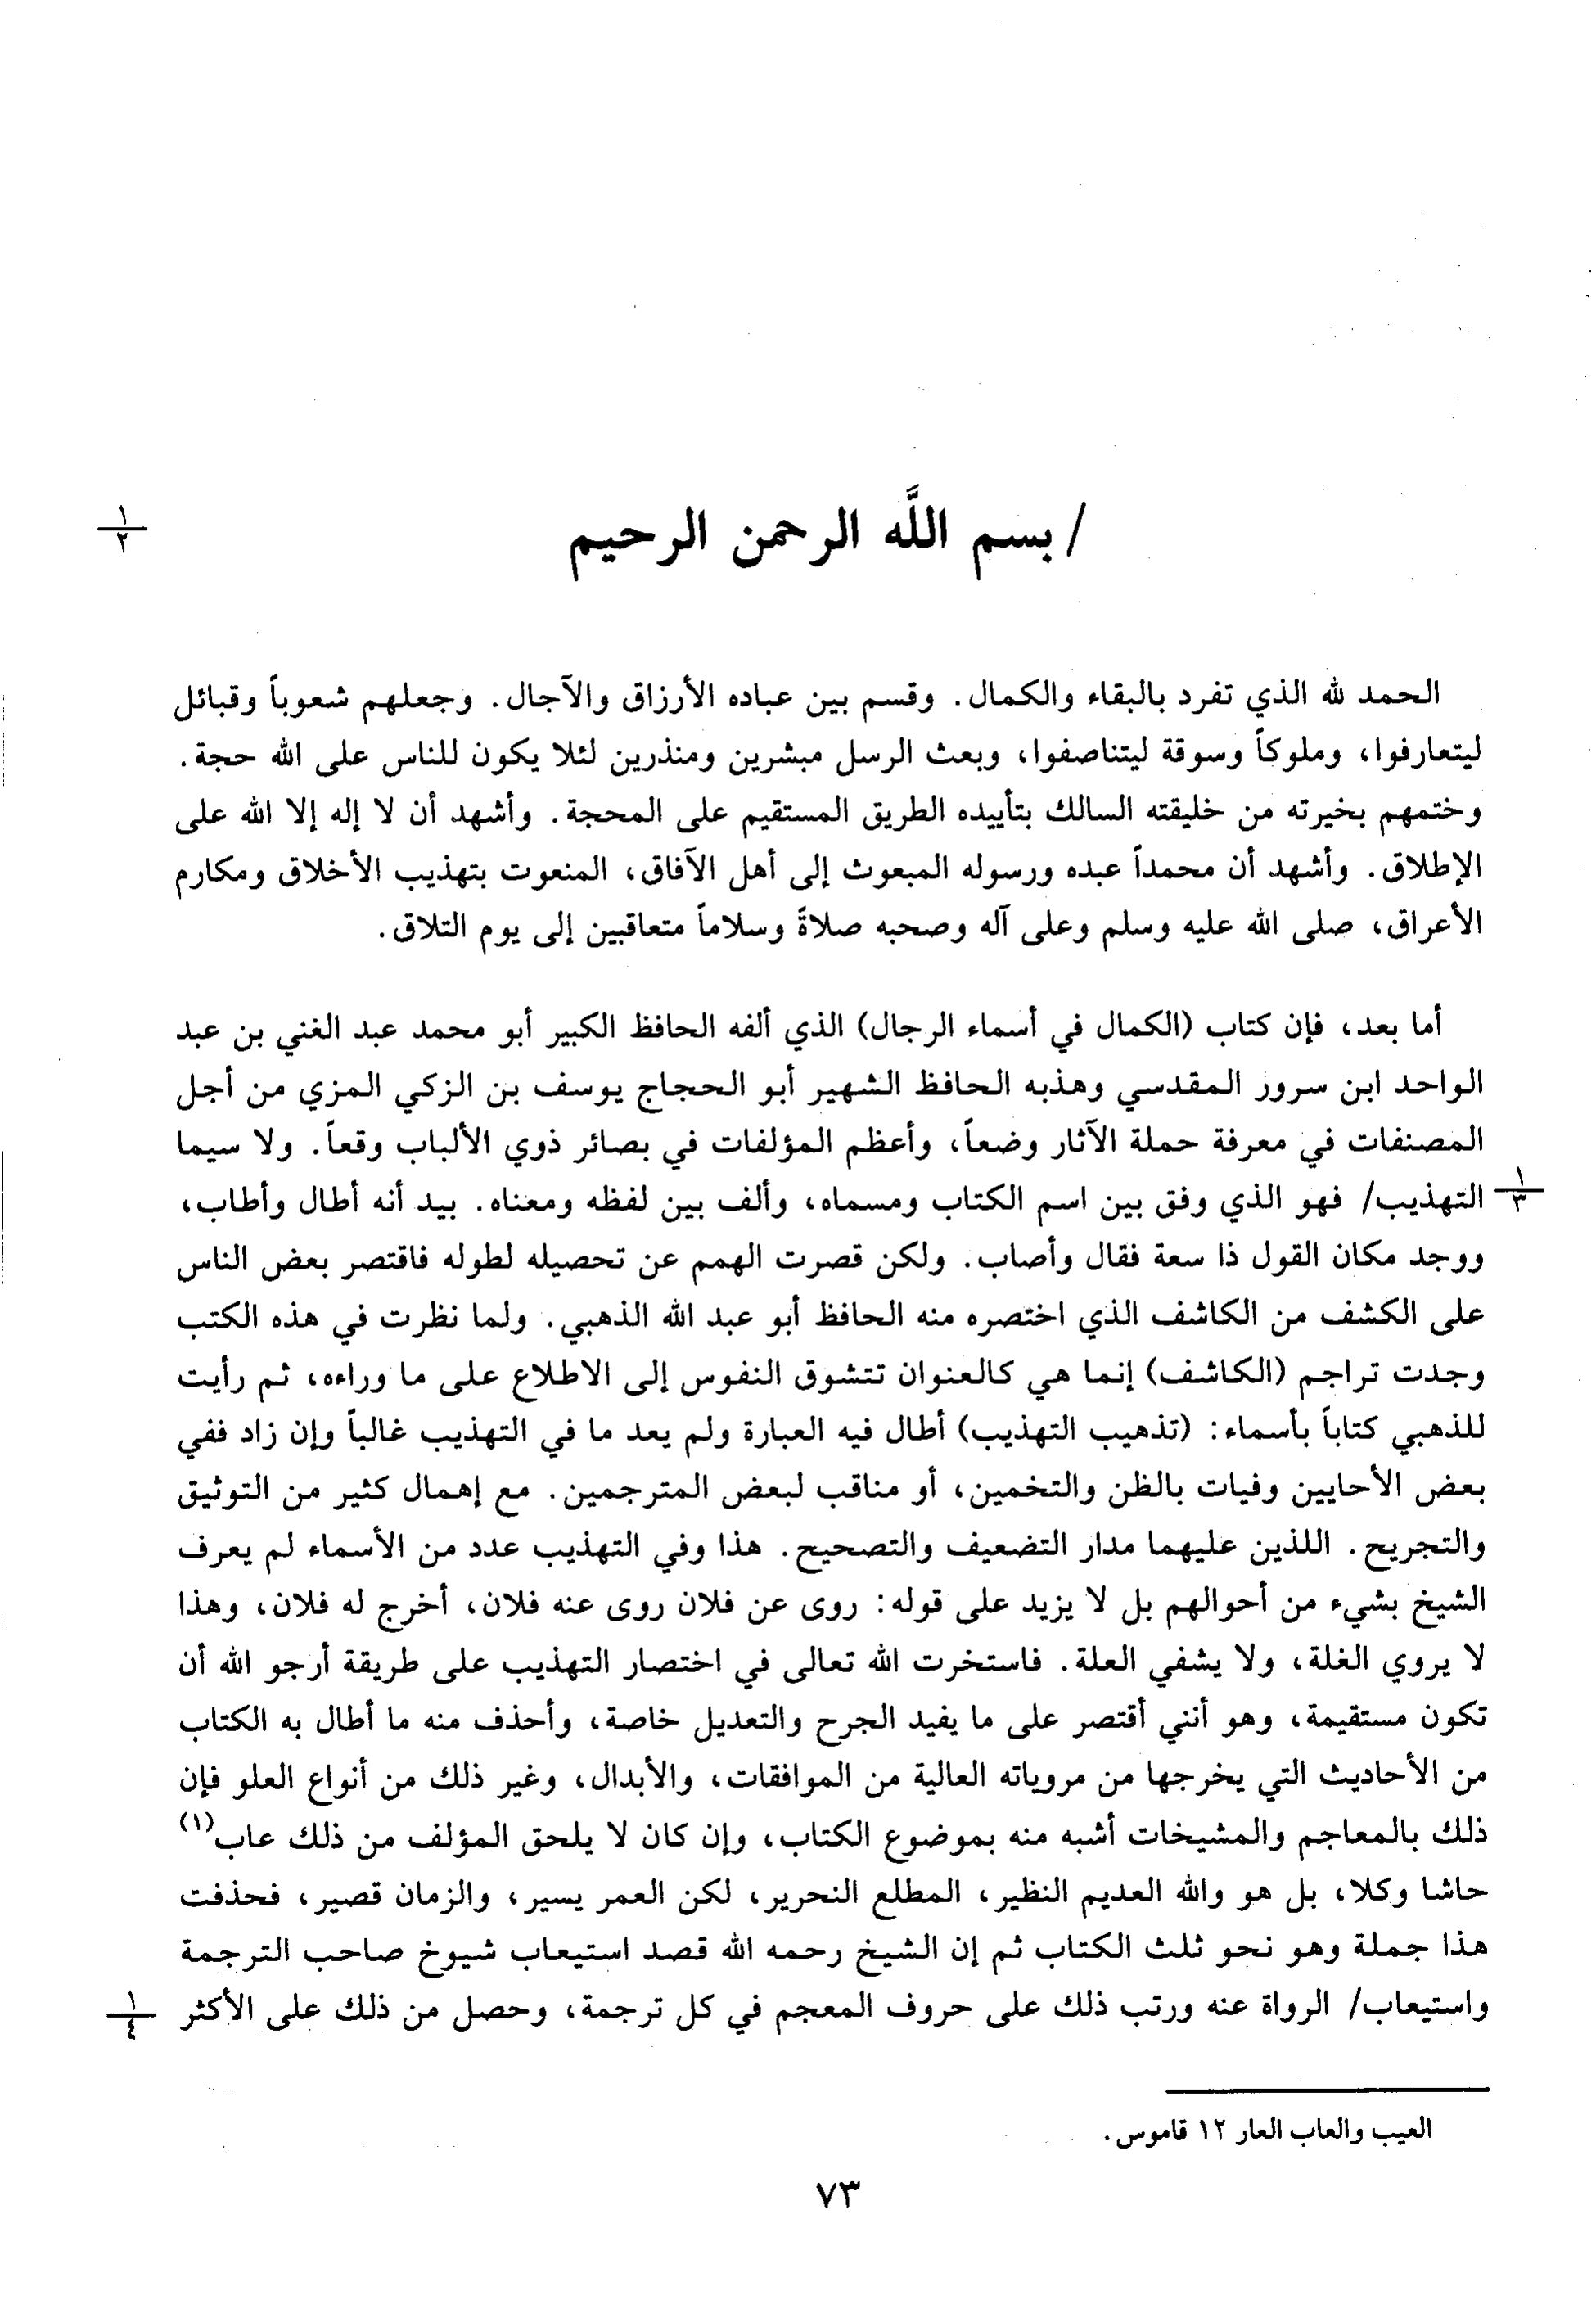 / بسم اللَّه الرحمن الرحيم
١
٢
الحمد لله الذي تفرد بالبقاء والكمال. وقسم بين عباده الأرزاق والآجال. وجعلهم شعوباً وقبائل
ليتعارفوا، وملوكاً وسوقة ليتناصفوا، وبعث الرسل مبشرين ومنذرين لئلا يكون للناس على الله حجة.
وختمهم بخيرته من خليقته السالك بتأييده الطريق المستقيم على المحجة. وأشهد أن لا إله إلا الله على
الإطلاق. وأشهد أن محمداً عبده ورسوله المبعوث إلى أهل الآفاق، المنعوت بتهذيب الأخلاق ومكارم
الأعراق، صلى الله عليه وسلم وعلى آله وصحبه صلاةً وسلاماً متعاقبين إلى يوم التلاق.
أما بعد، فإن كتاب (الكمال في أسماء الرجال) الذي ألفه الحافظ الكبير أبو محمد عبد الغني بن عبد
الواحد ابن سرور المقدسي وهذبه الحافظ الشهير أبو الحجاج يوسف بن الزكي المزي من أجل
المصنفات في معرفة حملة الآثار وضعاً، وأعظم المؤلفات في بصائر ذوي الألباب وقعاً. ولا سيما
١
٣
التهذيب/ فهو الذي وفق بين اسم الكتاب ومسماه، وألف بين لفظه ومعناه. بيد أنه أطال وأطاب،
ووجد مكان القول ذا سعة فقال وأصاب. ولكن قصرت الهمم عن تحصيله لطوله فاقتصر بعض الناس
على الكشف من الكاشف الذي اختصره منه الحافظ أبو عبد الله الذهبي. ولما نظرت في هذه الكتب
وجدت تراجم (الكاشف) إنما هي كالعنوان تتشوق النفوس إلى الاطلاع على ما وراءه، ثم رأيت
للذهبي كتاباً بأسماء: (تذهيب التهذيب) أطال فيه العبارة ولم يعد ما في التهذيب غالباً وإن زاد ففي
بعض الأحايين وفيات بالظن والتخمين، أو مناقب لبعض المترجمين. مع إهمال كثير من التوثيق
والتجريح. اللذين عليهما مدار التضعيف والتصحيح. هذا وفي التهذيب عدد من الأسماء لم يعرف
الشيخ بشيء من أحوالهم بل لا يزيد على قوله: روى عن فلان روى عنه فلان، أخرج له فلان، وهذا
لا يروي الغلة، ولا يشفي العلة. فاستخرت الله تعالى في اختصار التهذيب على طريقة أرجو الله أن
تكون مستقيمة، وهو أنني أقتصر على ما يفيد الجرح والتعديل خاصة، وأحذف منه ما أطال به الكتاب
من الأحاديث التي يخرجها من مروياته العالية من الموافقات، والأبدال، وغير ذلك من أنواع العلو فإن
ذلك بالمعاجم والمشيخات أشبه منه بموضوع الكتاب، وإن كان لا يلحق المؤلف من ذلك عاب(١)
حاشا وكلا، بل هو والله العديم النظير، المطلع النحرير، لكن العمر يسير، والزمان قصير، فحذفت
هذا جملة وهو نحو ثلث الكتاب ثم إن الشيخ رحمه الله قصد استيعاب شيوخ صاحب الترجمة
واستيعاب/ الرواة عنه ورتب ذلك على حروف المعجم في كل ترجمة، وحصل من ذلك على الأكثر
١
٤
العيب والعاب العار ١٢ قاموس.
٧٣